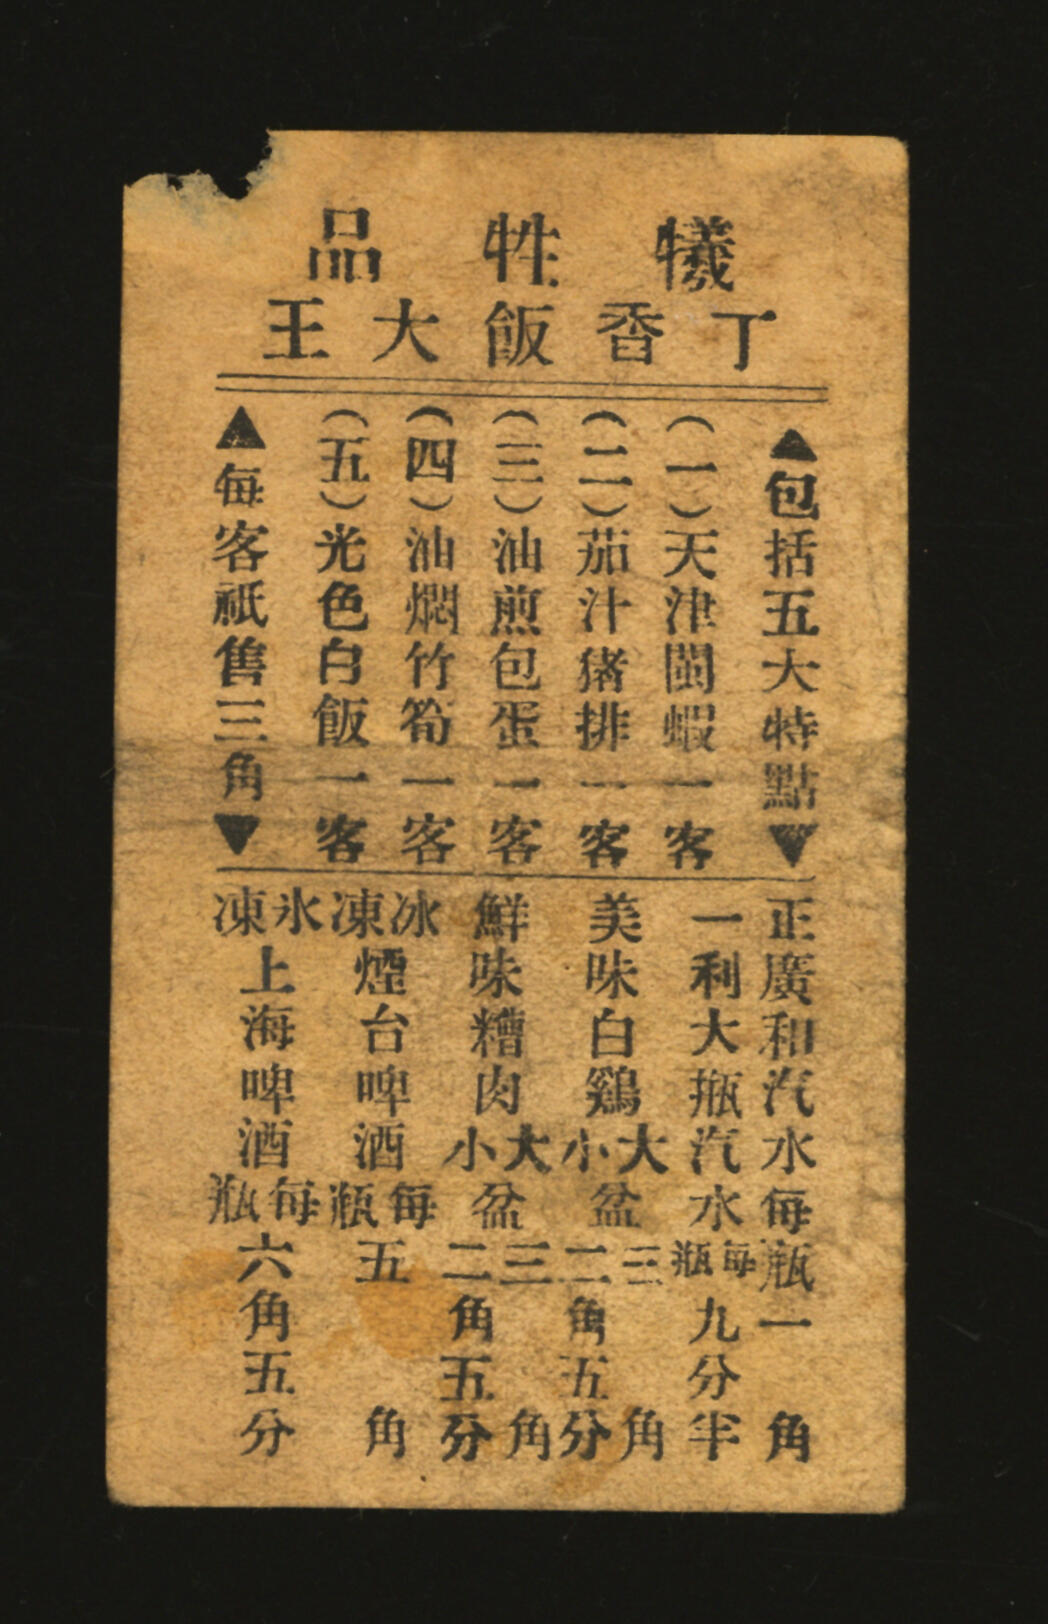 犧牲品
丁香飯大王
▲包括五大特點▼
(一)天津閩蝦一客
(二)茄汁豬排一客
(三)油煎包蛋一客
(四)油燜竹筍一客
(五)光色白飯一客
▲每客祇售三角▼
正廣和汽水每瓶一角
一利大瓶汽水每瓶九分半
美味白鷄大小盆三角二角五分
鮮味糟肉大小盆三角二角五分
冰凍煙台啤酒每瓶五角
氷凍上海啤酒每瓶六角五分